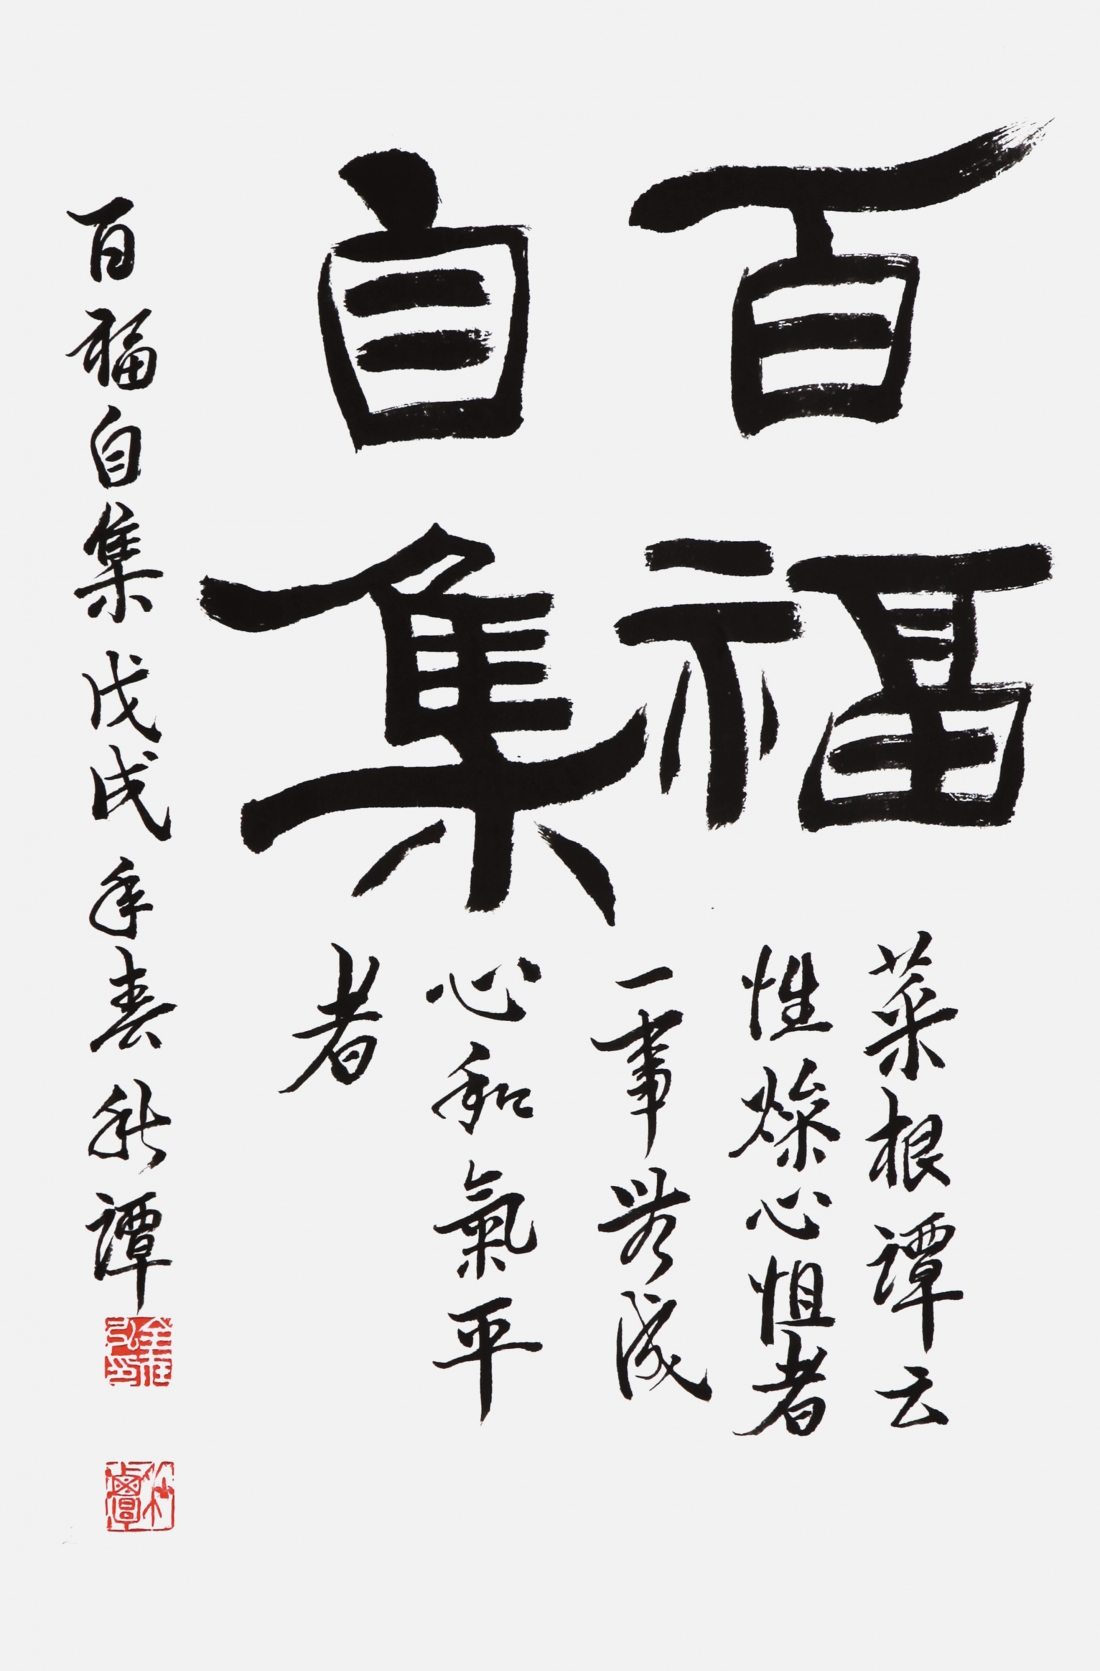 百福
自集
菜根谭云
性燥心怚者
一事无成
心和氣平
者
百福自集戊戌年春秋谭